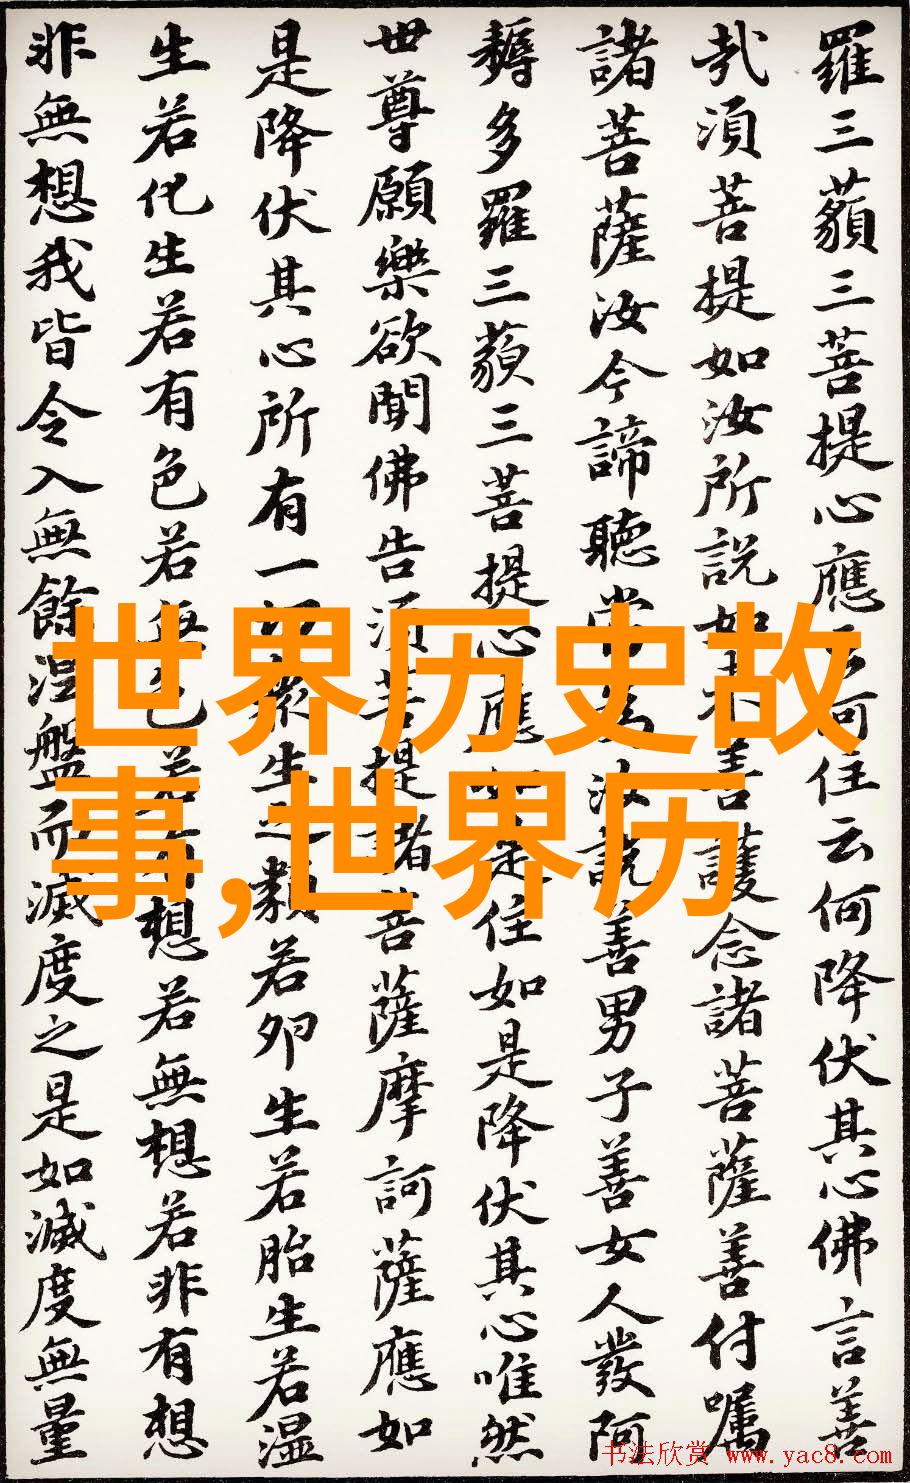 羅三藐三菩提心應云何住云何降伏其心佛言善
哉須菩提如汝所說如來善護念諸菩薩善付囑
諸菩薩汝今諦聽當為汝說善男子善女人發阿
耨多羅三藐三菩提心應如是住如是降伏其心唯然
世尊願樂欲聞佛告須菩提諸菩薩摩訶薩應如
是降伏其心所有一切眾生之類若卵生若胎生若濕
生若化生若有色若無色若有想若無想若非有想
非無想我皆令入無餘涅盤而滅度之是如滅度無量
世界历史故
事,世界历
书法欣赏 www.yac8.com